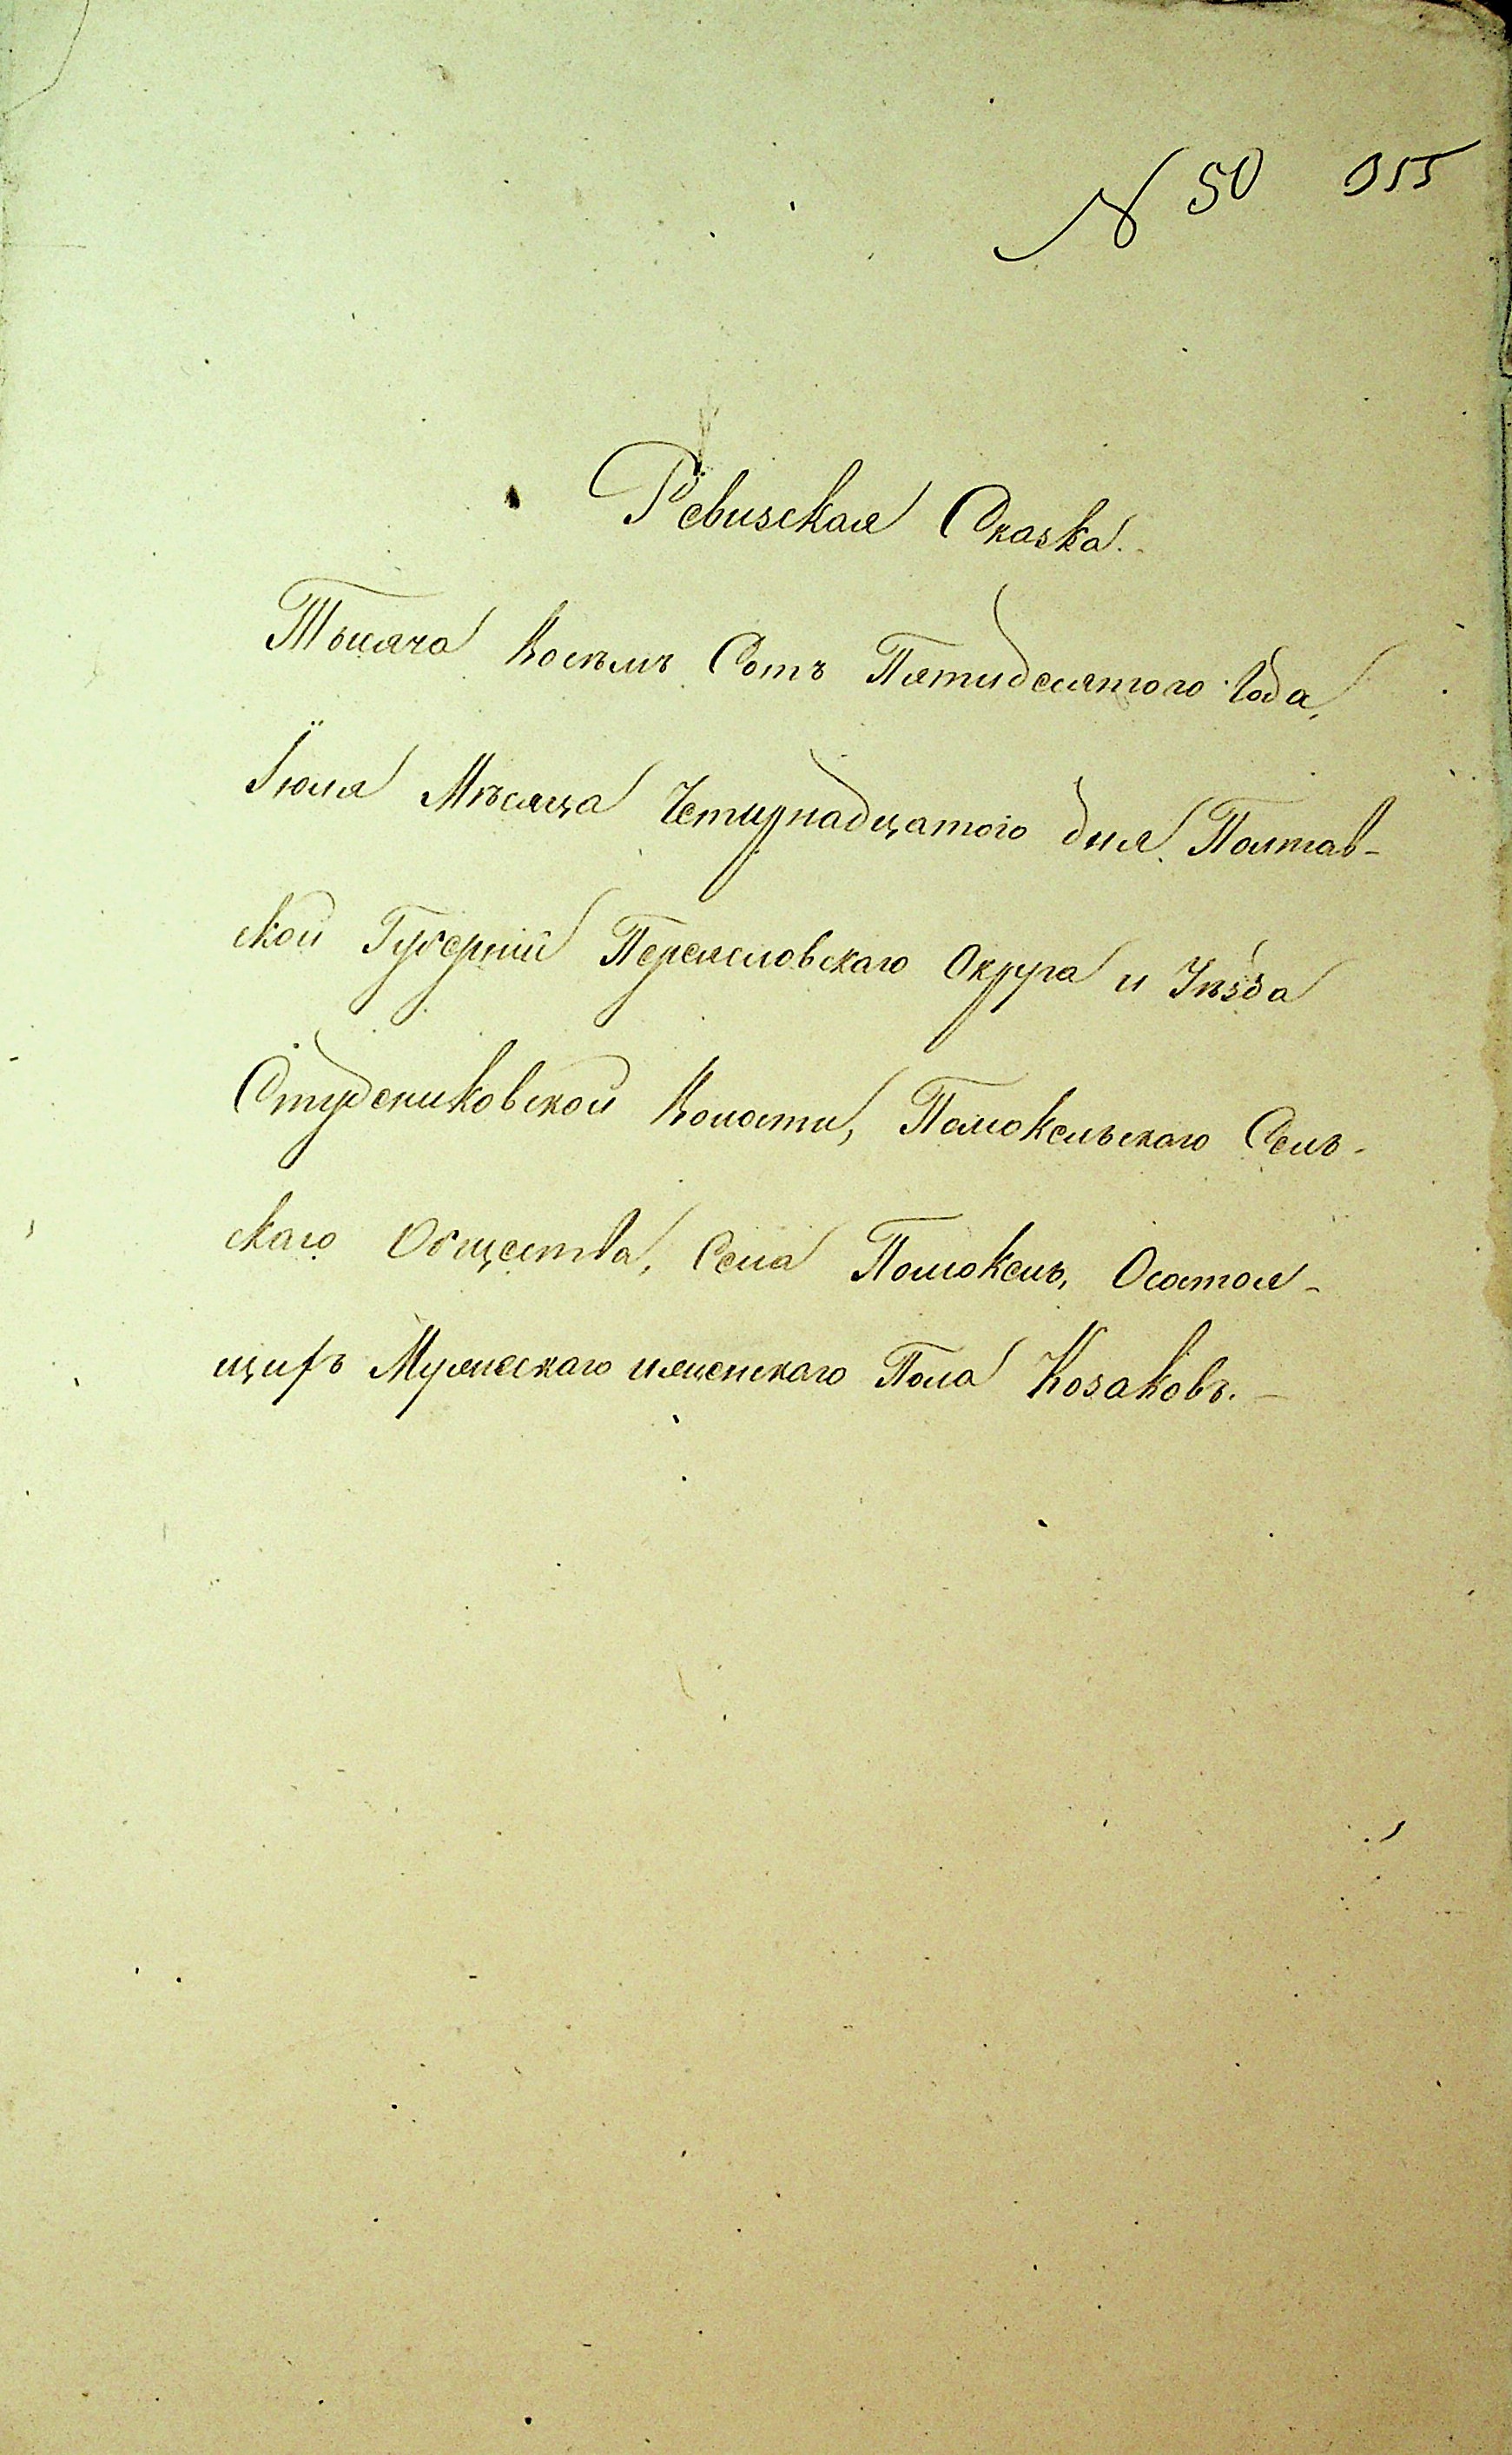 № 50 355
Ревизская Сказка.
Тысяча Восемь Сотъ Пятидесятого Года,
Іюля Мѣсяца Четирнадцатого дня. Полтав-
ской Губерніи Переясловскаго Округа и Уѣзда
Студениковской Волости, Помокельскаго Сель-
скаго Общества, Села Помокель, Осостоя-
щихъ Мужескаго иженскаго Пола Козаковъ. –